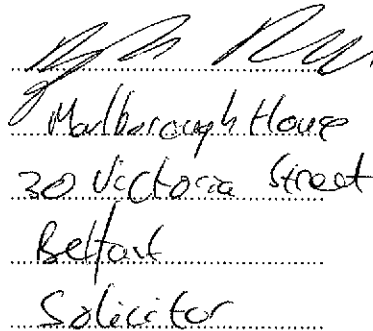 Marlborough House
30 Victoria Street
Belfast
Solicitor